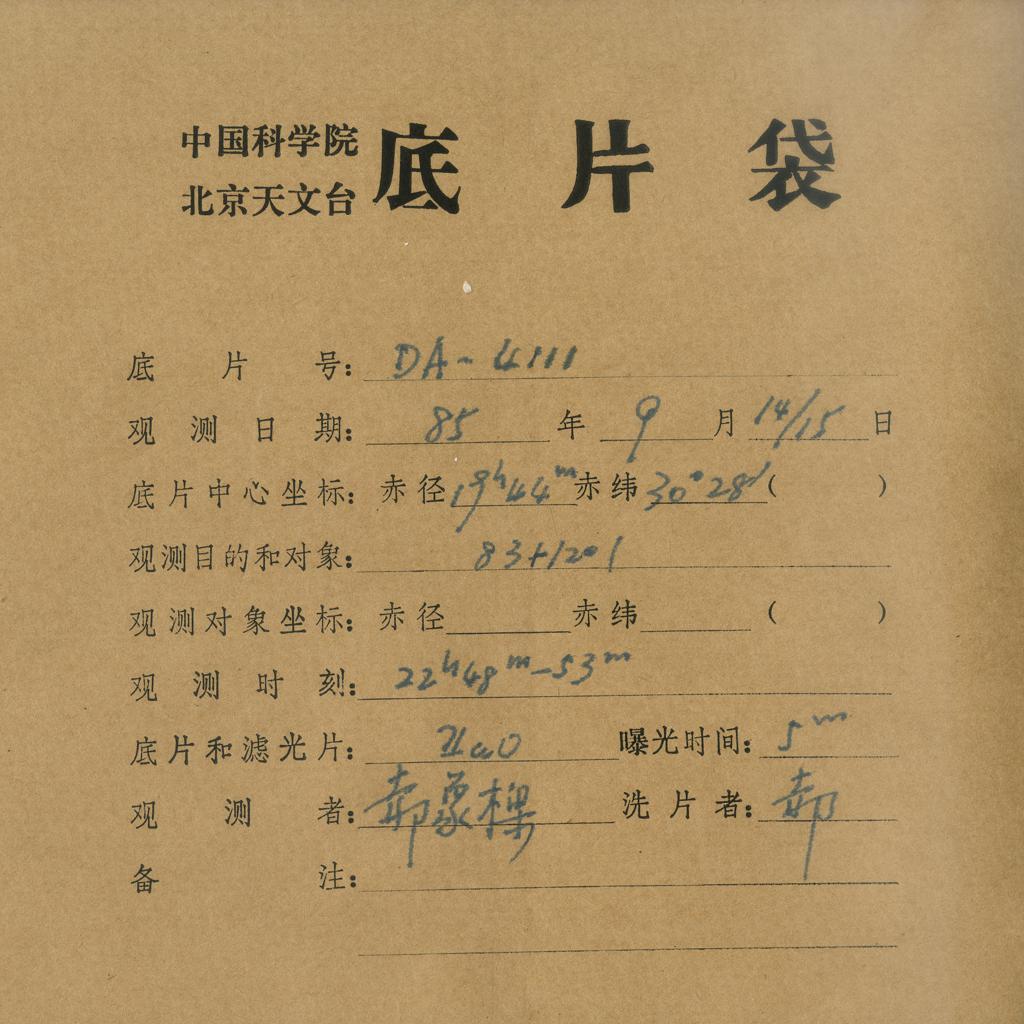 中国科学院
北京天文台
底片袋
底片号: DA-4111
观测日期: 85 年 9 月 14/15 日
底片中心坐标: 赤径 19h44m 赤纬 30°28' ( )
观测目的和对象: 83+1201
观测对象坐标: 赤径 赤纬 ( )
观测时刻: 22h48m-53m
底片和滤光片: IIaO 曝光时间: 5m
观测者: 郝象樑 洗片者: 郝
备注: